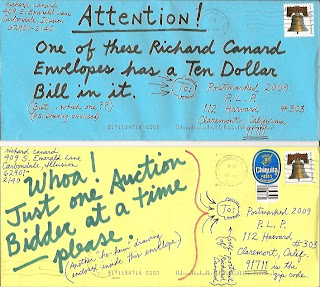 richard canard
409 S. Emerald Lane
Carbondale, Illinois
62901-2140
Attention!
One of these Richard Canard
Envelopes has a Ten Dollar
Bill in it.
(But... which one??)
To:
Postmarked 2009
P. L. P.
112 Harvard
#303
Claremont, California
91711
richard canard
409 S. Emerald Lane
Carbondale, Illinois
62901-
2140
Whoa!
Just one Auction
Bidder at a time
— please.
(Another "ho-hum" drawing
enclosed inside this envelope.)
Chiquita
To:
Postmarked 2009
P. L. P.
112 Harvard
#303
Claremont, Calif.
91711 is the
zip code